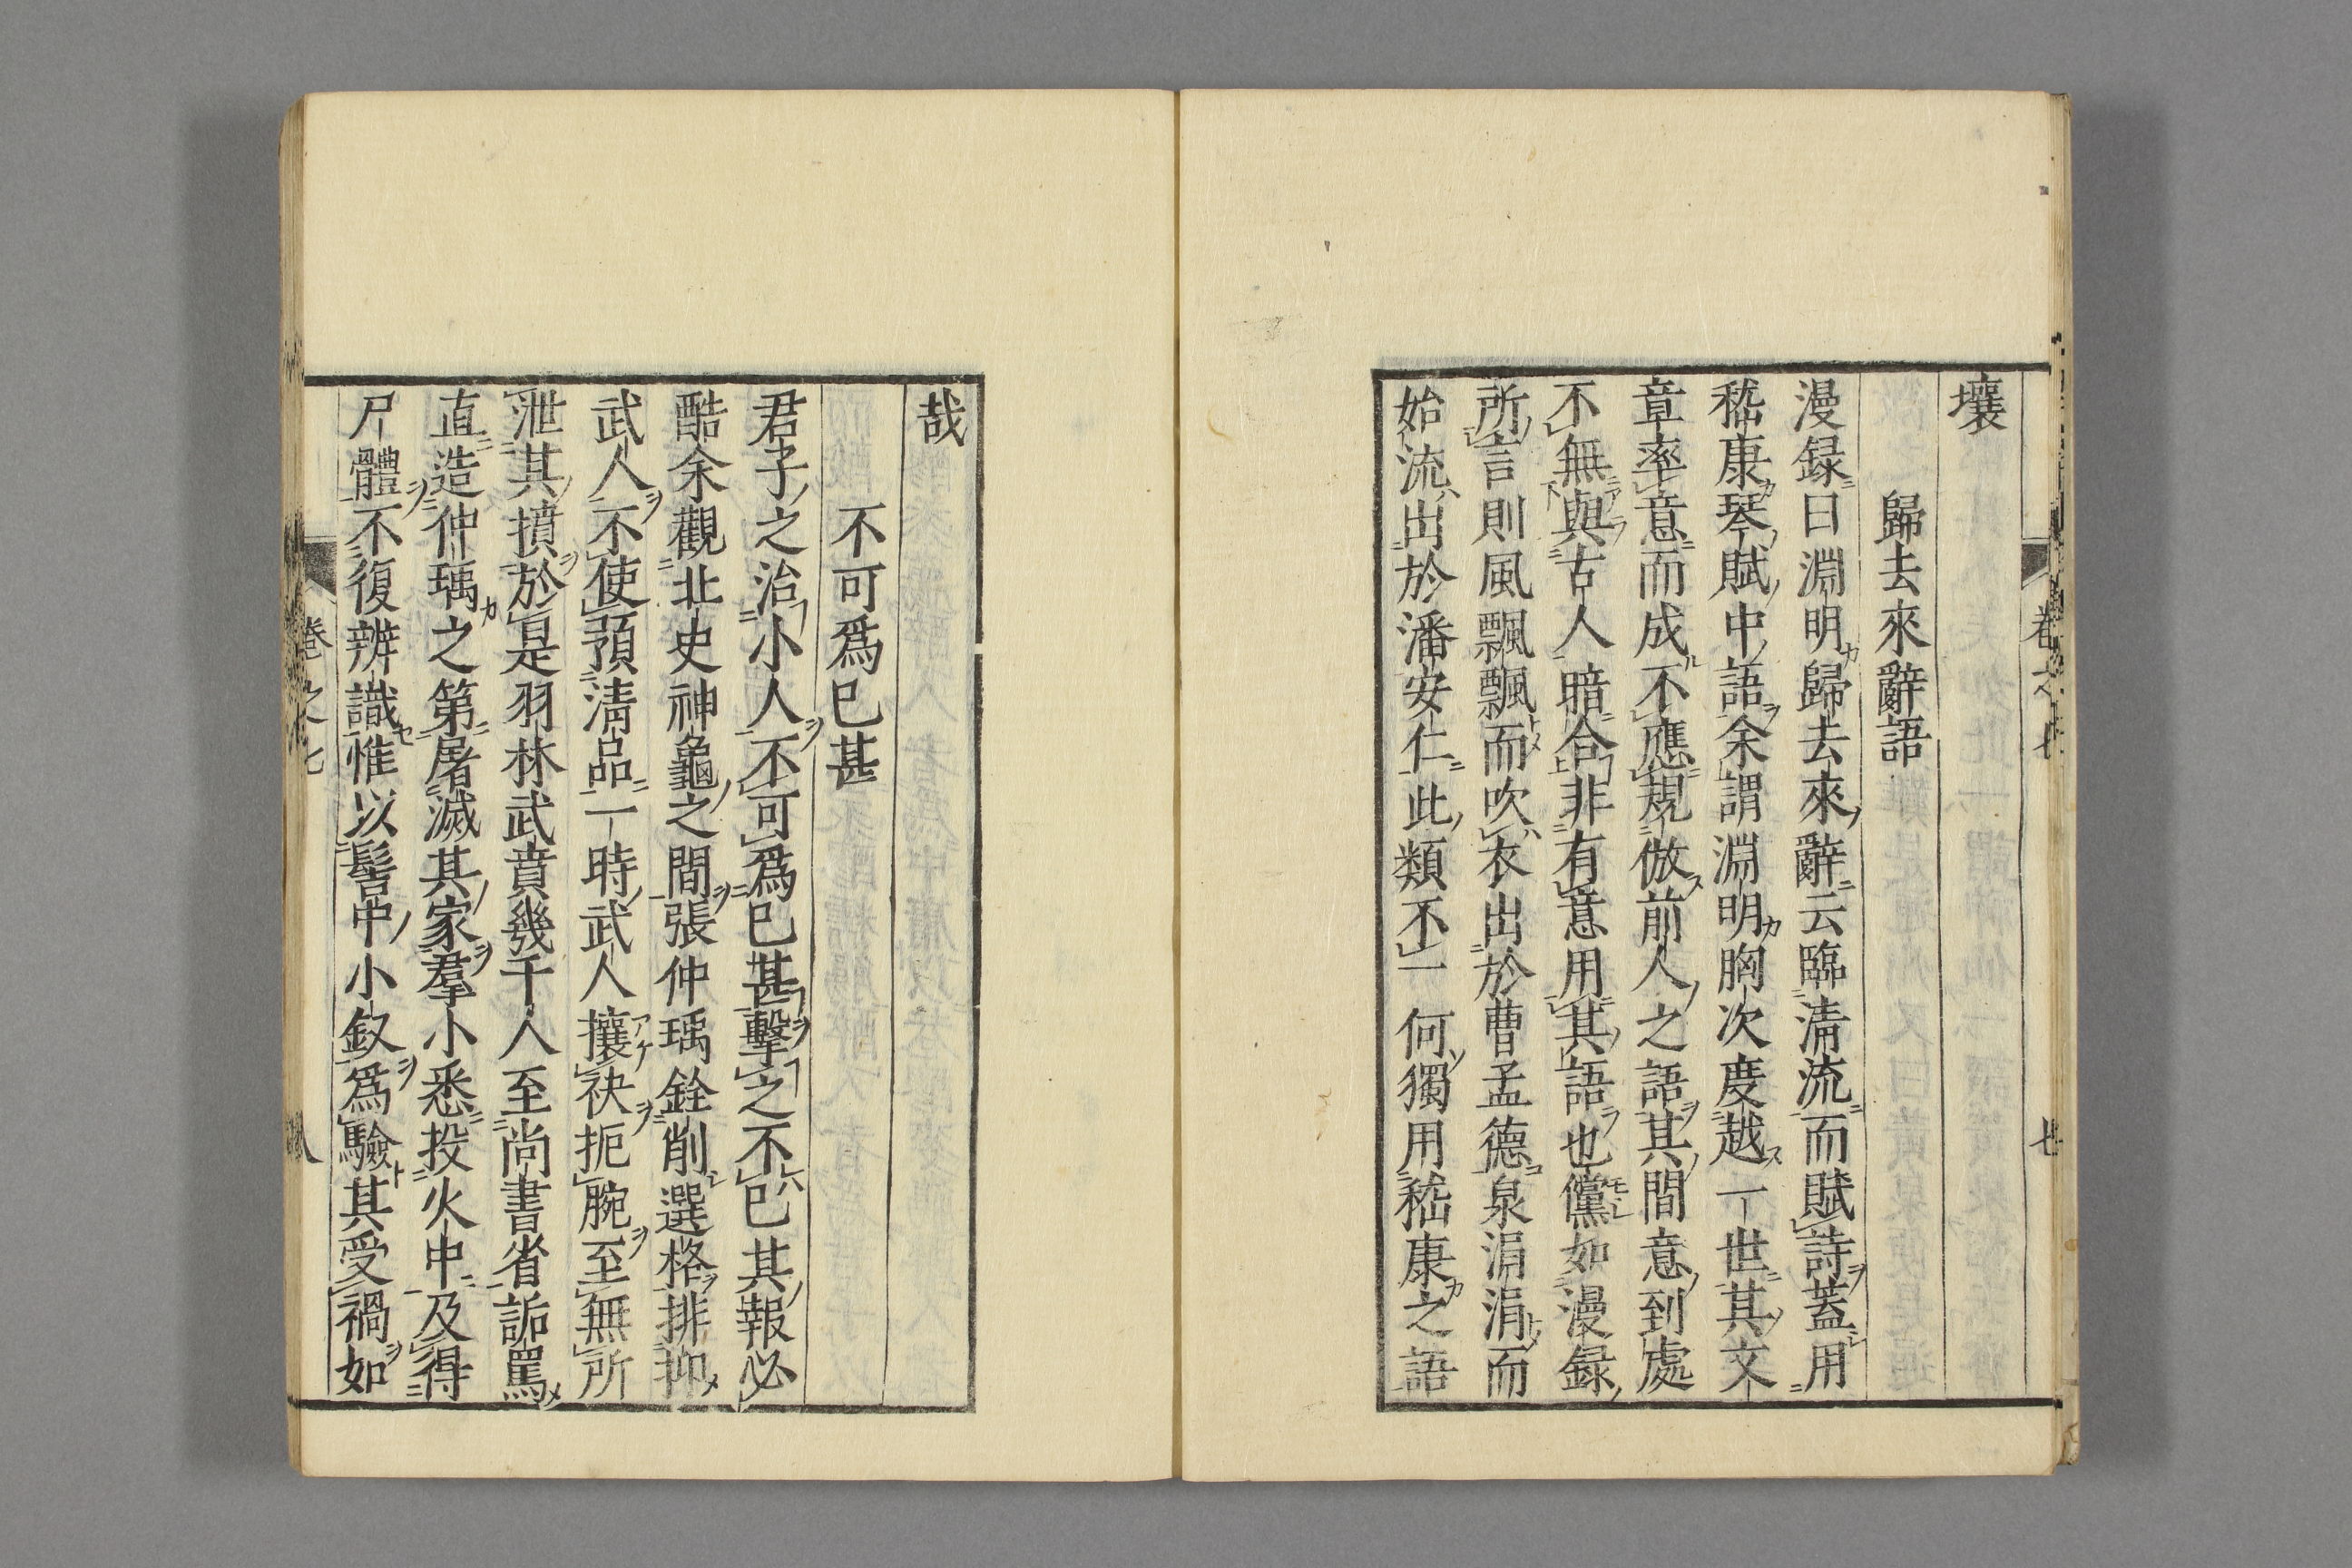 壤
歸去來辭語
漫録曰淵明歸去來辭云臨清流而賦詩蓋用
嵇康琴賦中語余謂淵明胸次度越一世其文
章率意而成不應規倣前人之語其間意到處
不無與古人暗合非有意用其語也儻如漫録
所言則風飄飄而吹衣出於曹孟德泉涓涓而
始流出於潘安仁此類不一何獨用嵇康之語
哉
不可爲已甚
君子之治小人不可爲已甚擊之不已其報必
酷余觀北史神龜之間張仲瑀銓削選格排抑
武人不使預清品一時武人攘袂扼腕至無所
泄其憤於是羽林武賁幾千人至尚書省詬罵
直造仲瑀之第屠滅其家羣小悉投火中及得
尸體不復辨識惟以髻中小釵爲驗其受禍如
卷之七